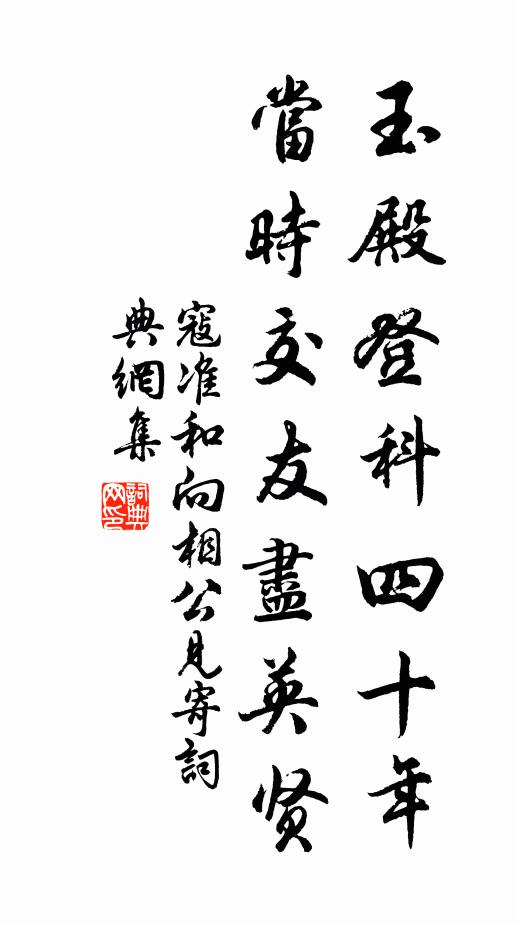 玉殿登科四十年
當時交友盡英贤
寇准和向相公見寄詞
典網集
詞典
网印